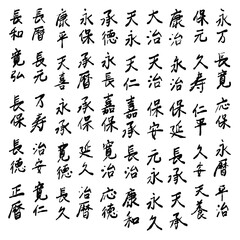 永万長寛応保永暦平治
保元久寿仁平久安天養
康治永治保延長承天承
大治天治保安元永永久
天永天仁嘉承長治康和
承徳永長嘉保寛治応徳
永保承暦承保延久治暦
康平天喜永承寛徳長久
長暦長元万寿治安寛仁
長和寛弘長保長徳正暦